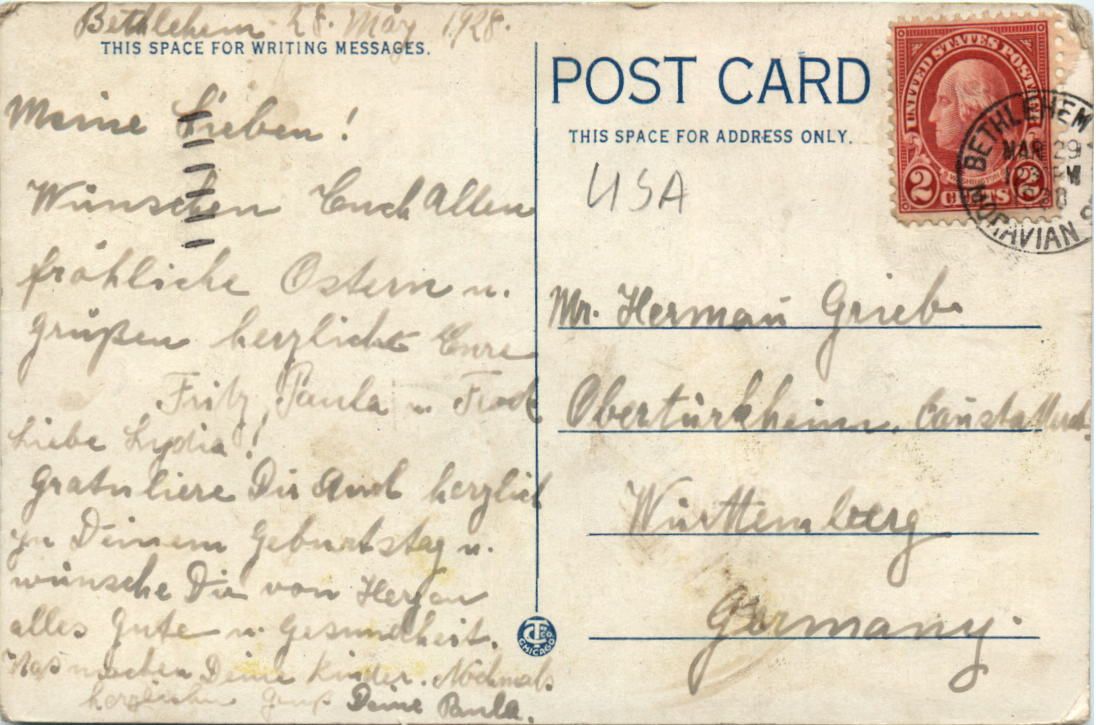 Bethlehem 28. März 1928.
THIS SPACE FOR WRITING MESSAGES.
Meine Lieben!
Wünschen Euch Allen
fröhliche Ostern u.
grüßen herzlichst Eure
Fritz, Paula u.
Liebe Lydia!
Gratuliere Dir auch herzlich
zu Deinem Geburtstag u.
wünsche Dir von Herzen
alles Gute u. Gesundheit.
Was machen Deine Kinder. Nochmals
herzlichen Gruß Deine Paula.
POST CARD
THIS SPACE FOR ADDRESS ONLY.
USA
Mr. Herman Grieb
Obertürkheim,
Württemberg
Germany.
UNITED STATES POSTAGE
WASHINGTON
2 CENTS 2
BETHLEHEM
MAR 29
MORAVIAN
CT CO
CHICAGO